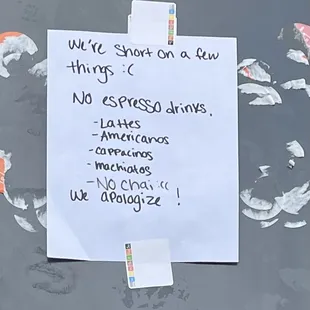 We're short on a few
things :(
No espresso drinks.
- Lattes
- Americanos
- cappacinos
- machiatos
- No chai :((
We apologize !